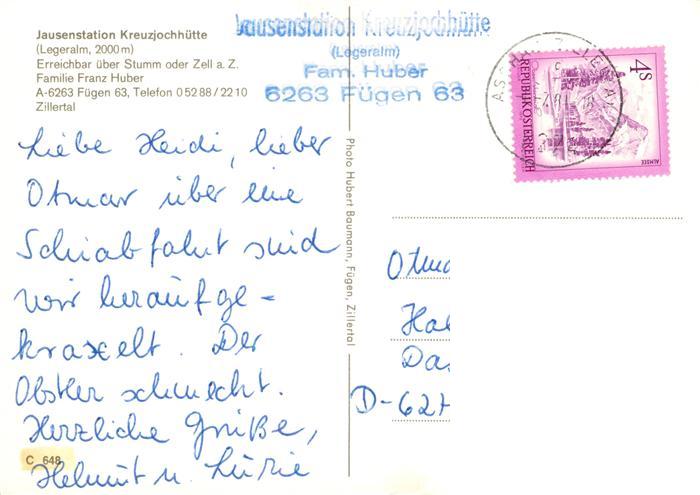 Jausenstation Kreuzjochhütte
(Legeralm, 2000 m)
Erreichbar über Stumm oder Zell a. Z.
Familie Franz Huber
A-6263 Fügen 63, Telefon 0 52 88 / 22 10
Zillertal
Jausenstation Kreuzjochhütte
(Legeralm)
Fam. Huber
6263 Fügen 63
4 S
REPUBLIK ÖSTERREICH
ALMSEE
Liebe Heidi, lieber
Otmar über eine
Schiabfahrt sind
wir heraufge-
kraxelt. Der
Obstler schmeckt.
Herzliche Grüße,
Helmut u.
C 648
Photo Hubert Baumann, Fügen, Zillertal
Otma
Ha
Da
D-627